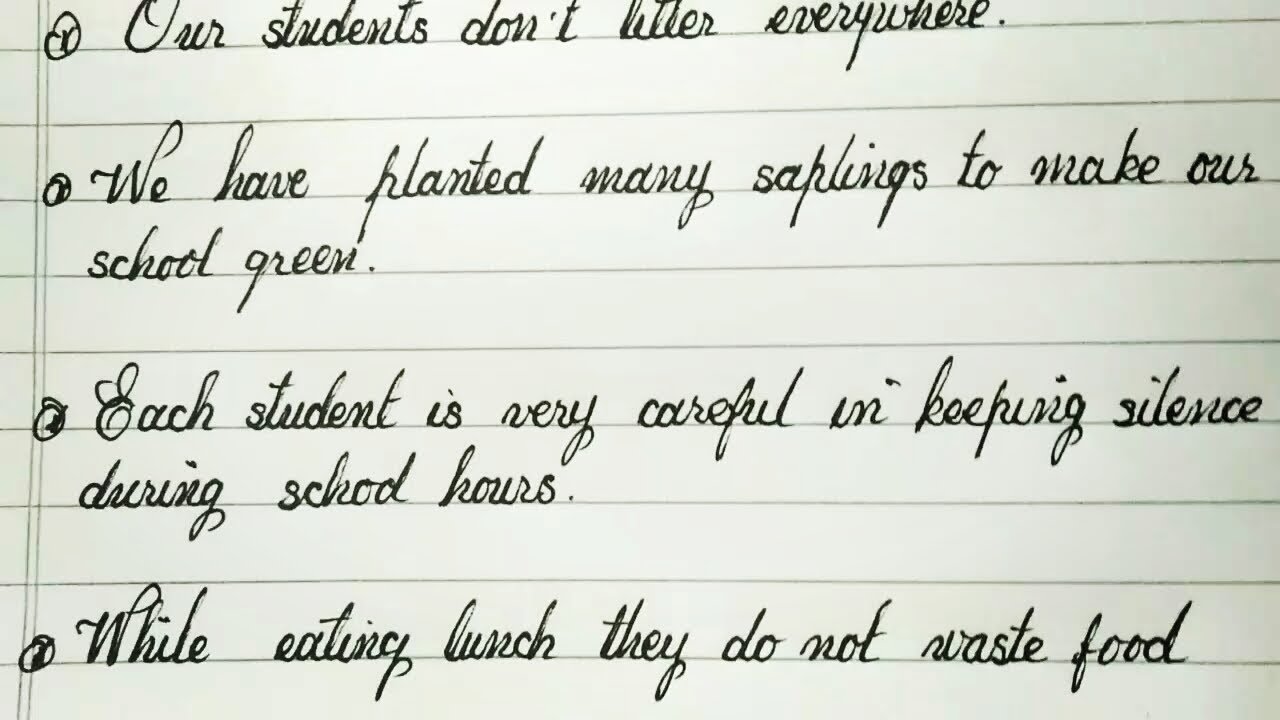 Our students don't litter everywhere.
We have planted many saplings to make our
school green.
Each student is very careful in keeping silence
during school hours.
While eating lunch they do not waste food